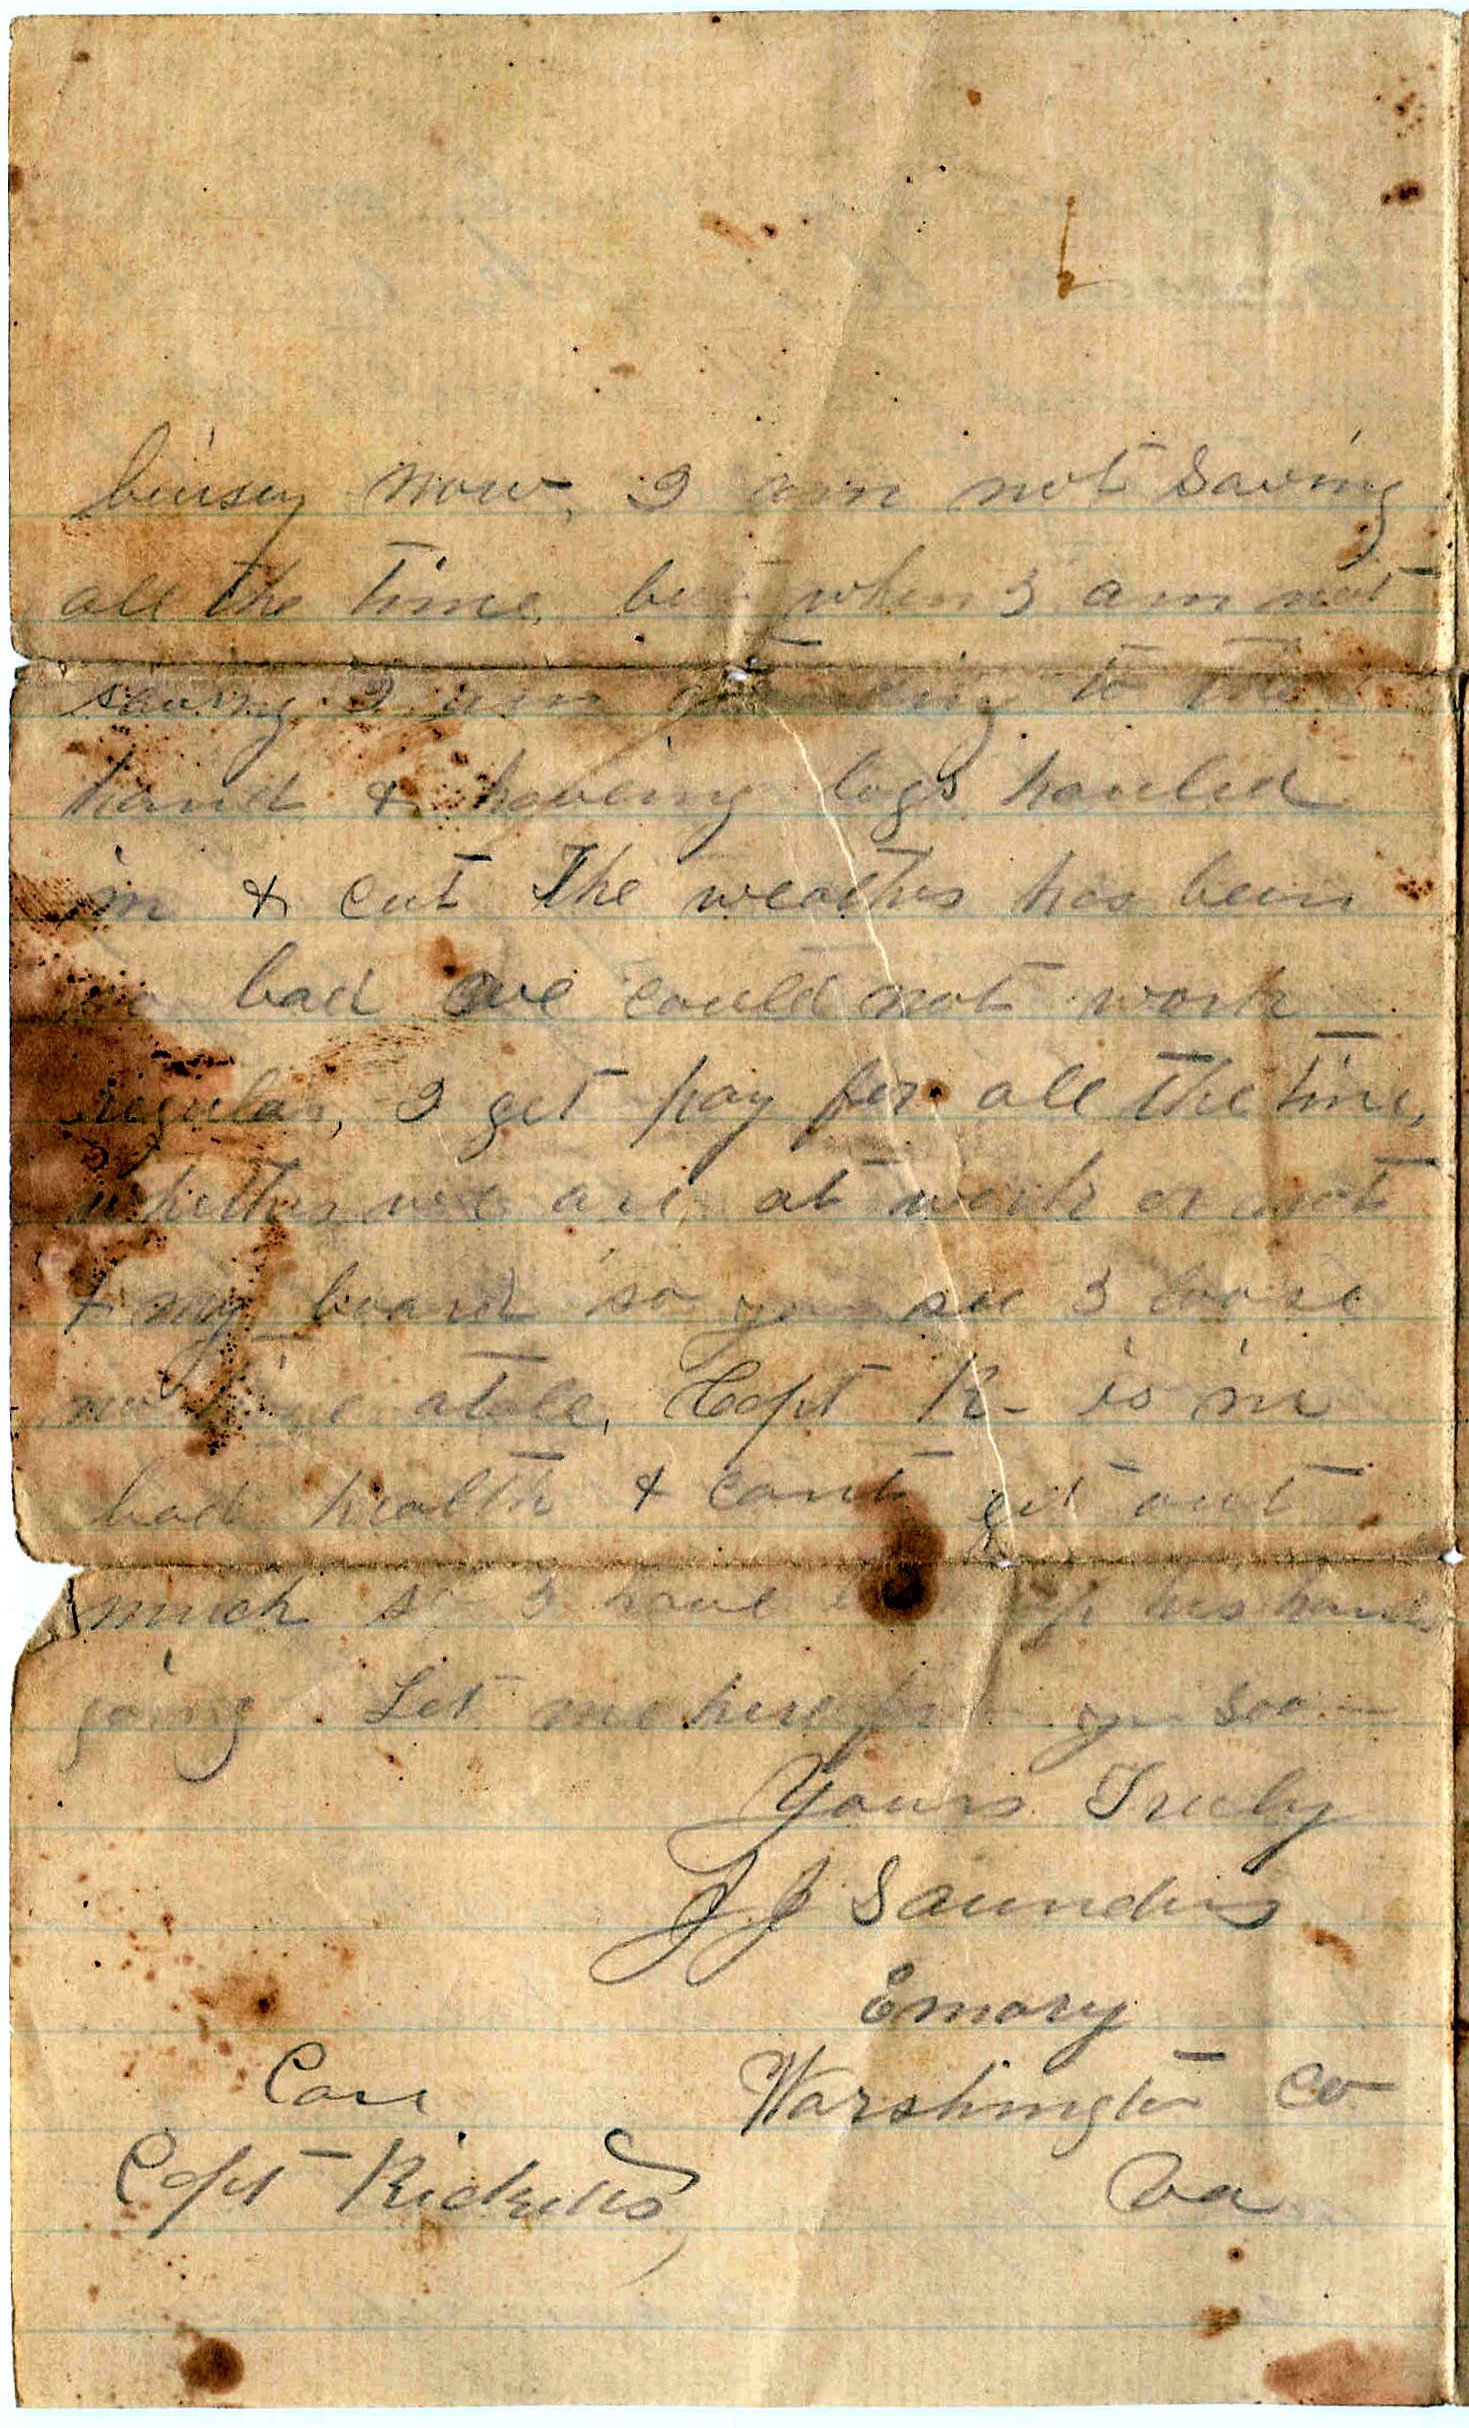 buisey now, I am not Saving
all the time, but when I am not
saving I am to the
hand & haveing logs hauled
in & cut The weather has been
so bad we could not work
regular, I get pay for all the time,
whether we are at work or not
& my board so you see I loose
no time atall, Capt R- is in
bad health & cant get out
much so I have his hands
going Let me here from you soon
Yours Truly
J J Saunders
Emory
Care Warshington Co
Capt Ricketts Va